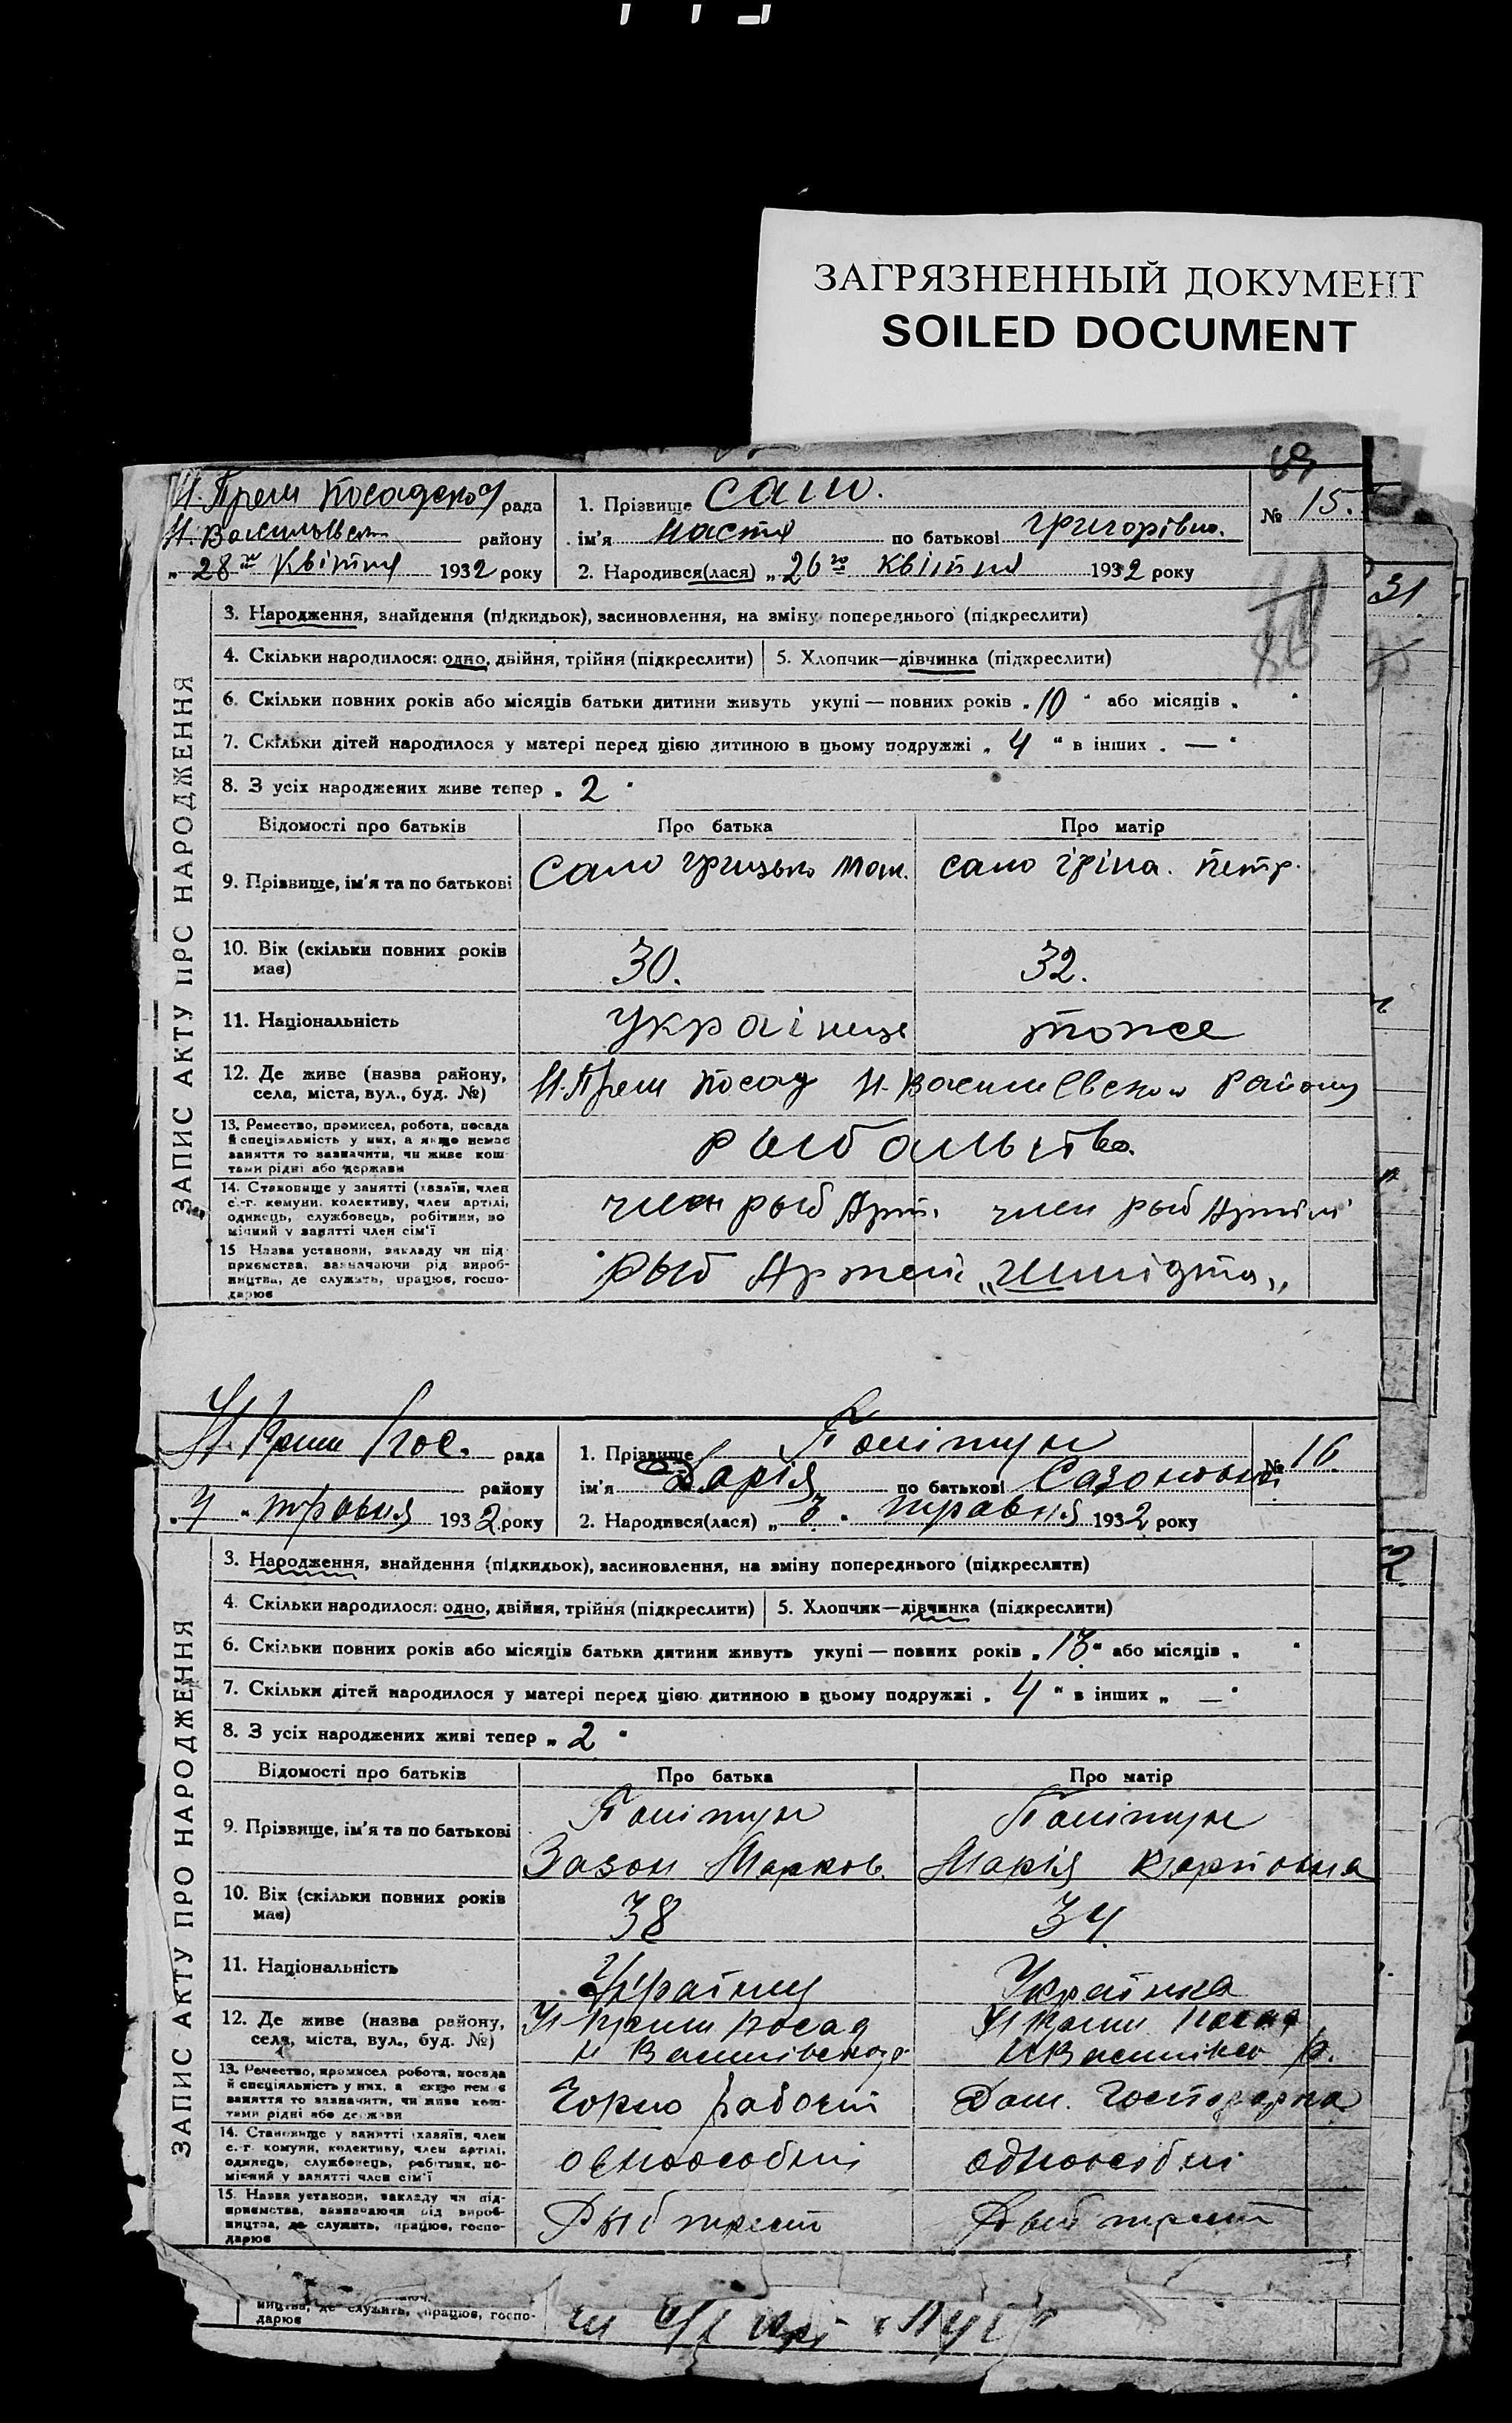 ЗАГРЯЗНЕННЫЙ ДОКУМЕНТ
SOILED DOCUMENT
69
Н. Прем Посадской рада
Н. Васильевськ району
„ 28го Квітня 1932 року
1. Прізвище Сало.
ім'я Настя по батькові Григорівна.
2. Народився(лася) „ 26го Квітня 1932 року
№ 15.
31
ЗАПИС АКТУ ПРО НАРОДЖЕННЯ
3. Народження, знайдення (підкидьок), засиновлення, на зміну попереднього (підкреслити)
4. Скільки народилося: одно, двійня, трійня (підкреслити) 5. Хлопчик—дівчинка (підкреслити)
6. Скільки повних років або місяців батьки дитини живуть укупі — повних років „ 10 “ або місяців „ “
7. Скільки дітей народилося у матері перед цією дитиною в цьому подружжі „ 4 “ в інших „ — “
8. З усіх народжених живе тепер „ 2 “
Відомості про батьків Про батька Про матір
9. Прізвище, ім'я та по батькові Сало Грицько Мак. Сало Іріна. Петр.
10. Вік (скільки повних років має) 30. 32.
11. Національність Українці тоже
12. Де живе (назва району, села, міста, вул., буд. №) Н. Прем Посад Н. Василевского Району
13. Ремество, промисел, робота, посада й спеціяльність у них, а якщо немає заняття то зазначити, чи живе коштами рідні або держави рыбальство.
14. Становище у занятті (хазяїн, член с.-г. комуни, колективу, член артілі, одинець, службовець, робітник, помічний у занятті член сім'ї член рыб Арт. член рыб Артілі
15 Назва установи, закладу чи підприємства, зазначаючи рід виробництва, де служить, працює, господарює Рыб Артель „Шмідта„
Н. Прем Пос. рада
району
„ 4 „ травня 1932 року
1. Прізвище
ім'я Дарія по батькові Сазоновна
2. Народився(лася) „ 3 „ травня 1932 року
№ 16.
2
ЗАПИС АКТУ ПРО НАРОДЖЕННЯ
3. Народження, знайдення (підкидьок), засиновлення, на зміну попереднього (підкреслити)
4. Скільки народилося: одно, двійня, трійня (підкреслити) 5. Хлопчик—дівчинка (підкреслити)
6. Скільки повних років або місяців батьки дитини живуть укупі — повних років „ 13 “ або місяців „ “
7. Скільки дітей народилося у матері перед цією дитиною в цьому подружжі „ 4 “ в інших „ — “
8. З усіх народжених живі тепер „ 2 “
Відомості про батьків Про батька Про матір
9. Прізвище, ім'я та по батькові
Зазон Марков. Марія Карповна
10. Вік (скільки повних років має) 38 34
11. Національність Українец Українка
12. Де живе (назва району, села, міста, вул., буд. №) Н Прем Посад Н Прем Посад
Н Василівського Н Василівсько р.
13. Ремество, промисел, робота, посада й спеціяльність у них, а якщо немає заняття то зазначити, чи живе коштами рідні або держави Чорно рабочій Дом. Господарка
14. Становище у занятті (хазяїн, член с.-г. комуни, колективу, член артілі, одинець, службовець, робітник, помічний у занятті член сім'ї одноособні одноосібні
15. Назва установи, закладу чи підприємства, зазначаючи рід виробництва, де служить, працює, господарює Рыб трест Рыб трест
ництва, де служить, працює, господарює